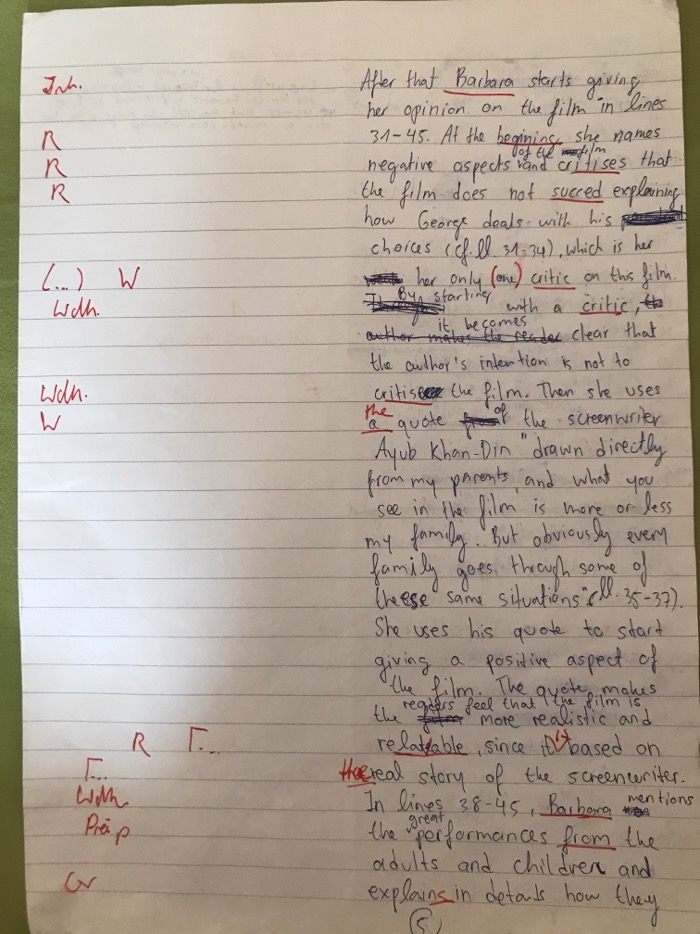 Inh. After that Barbara starts giving
her opinion on the film in lines
R 31-45. At the begining she names
R negative aspects of the film and critises that
R the film does not succed explaining
how George deals with his
choices (cf. ll. 31-34), which is her
(...) W her only (one) critic on this film.
Wdh. By starting with a critic,
it becomes clear that
the author's intention is not to
Wdh. critise the film. Then she uses
W the a quote of the screenwriter
Ayub Khan-Din "drawn directly
from my parents, and what you
see in the film is more or less
my family. But obviously every
family goes through some of
theese same situations" (ll. 35-37).
She uses his quote to start
giving a positive aspect of
the film. The quote makes
the readers feel that the film is more realistic and
R Γ... relatable, since it is based on
Γ... the real story of the screenwriter.
Wdh. In lines 38-45, Barbara mentions
Präp the great performances from the
adults and children and
Gr explains in details how they
5